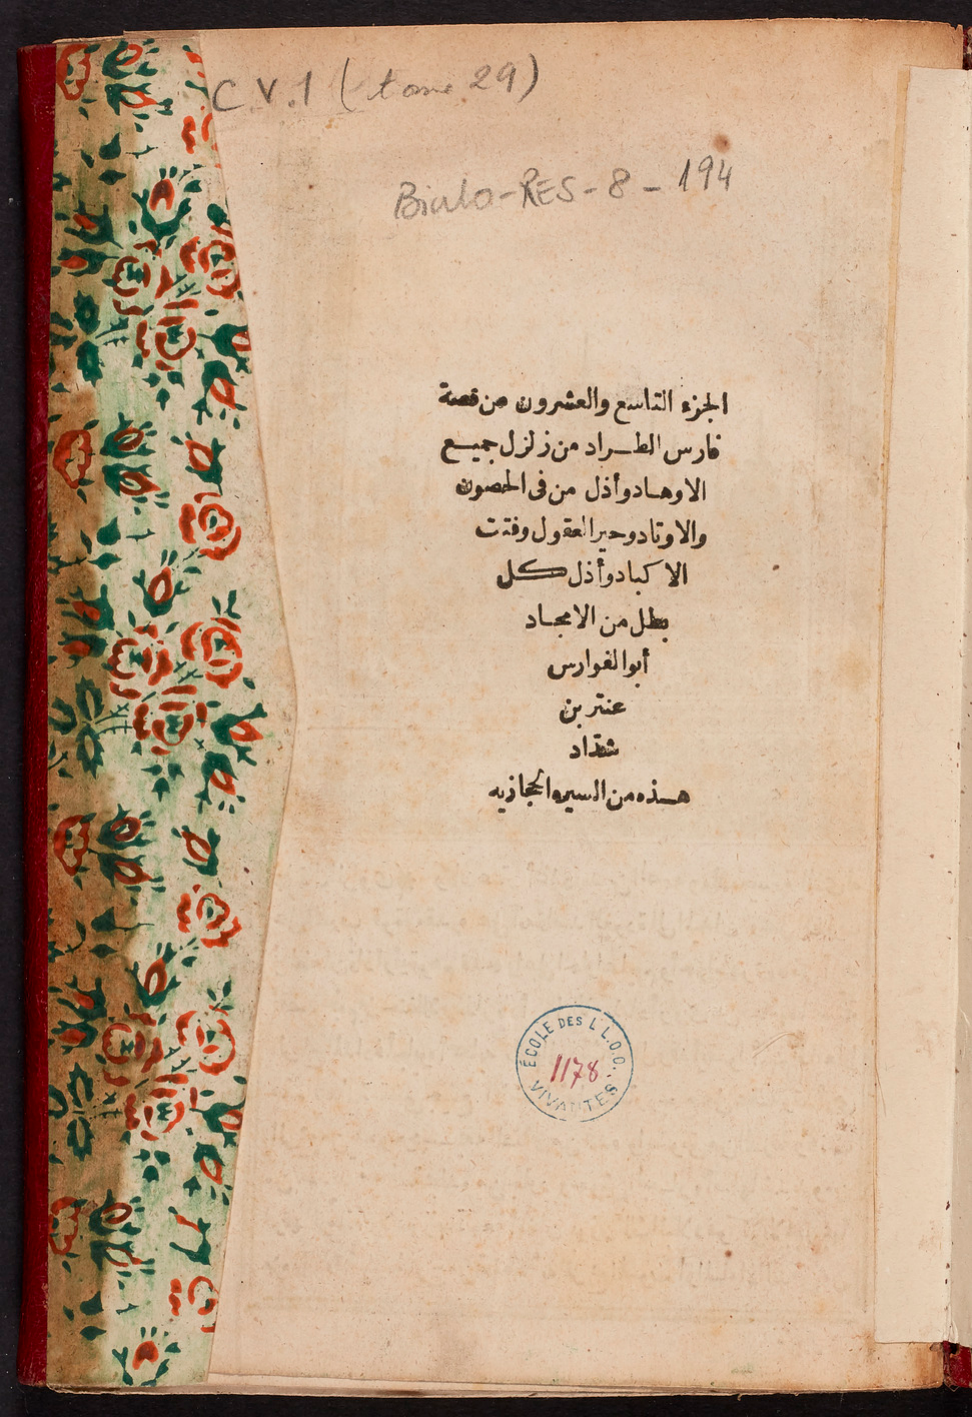 C.V.1 (tome 29)
Biulo-RES-8-194
الجزء التاسع والعشرون من قصة
فارس الطراد من زلزل جميع
الاوهاد وأذل من فى الحصون
والاوتاد وحير العقول وفتت
الاكباد وأذل كل
بطل من الامجاد
أبو الفوارس
عنتر بن
شداد
هذه من السيره الحجازيه
ÉCOLE DES L.L.O.O.
1178.
VIVANTES